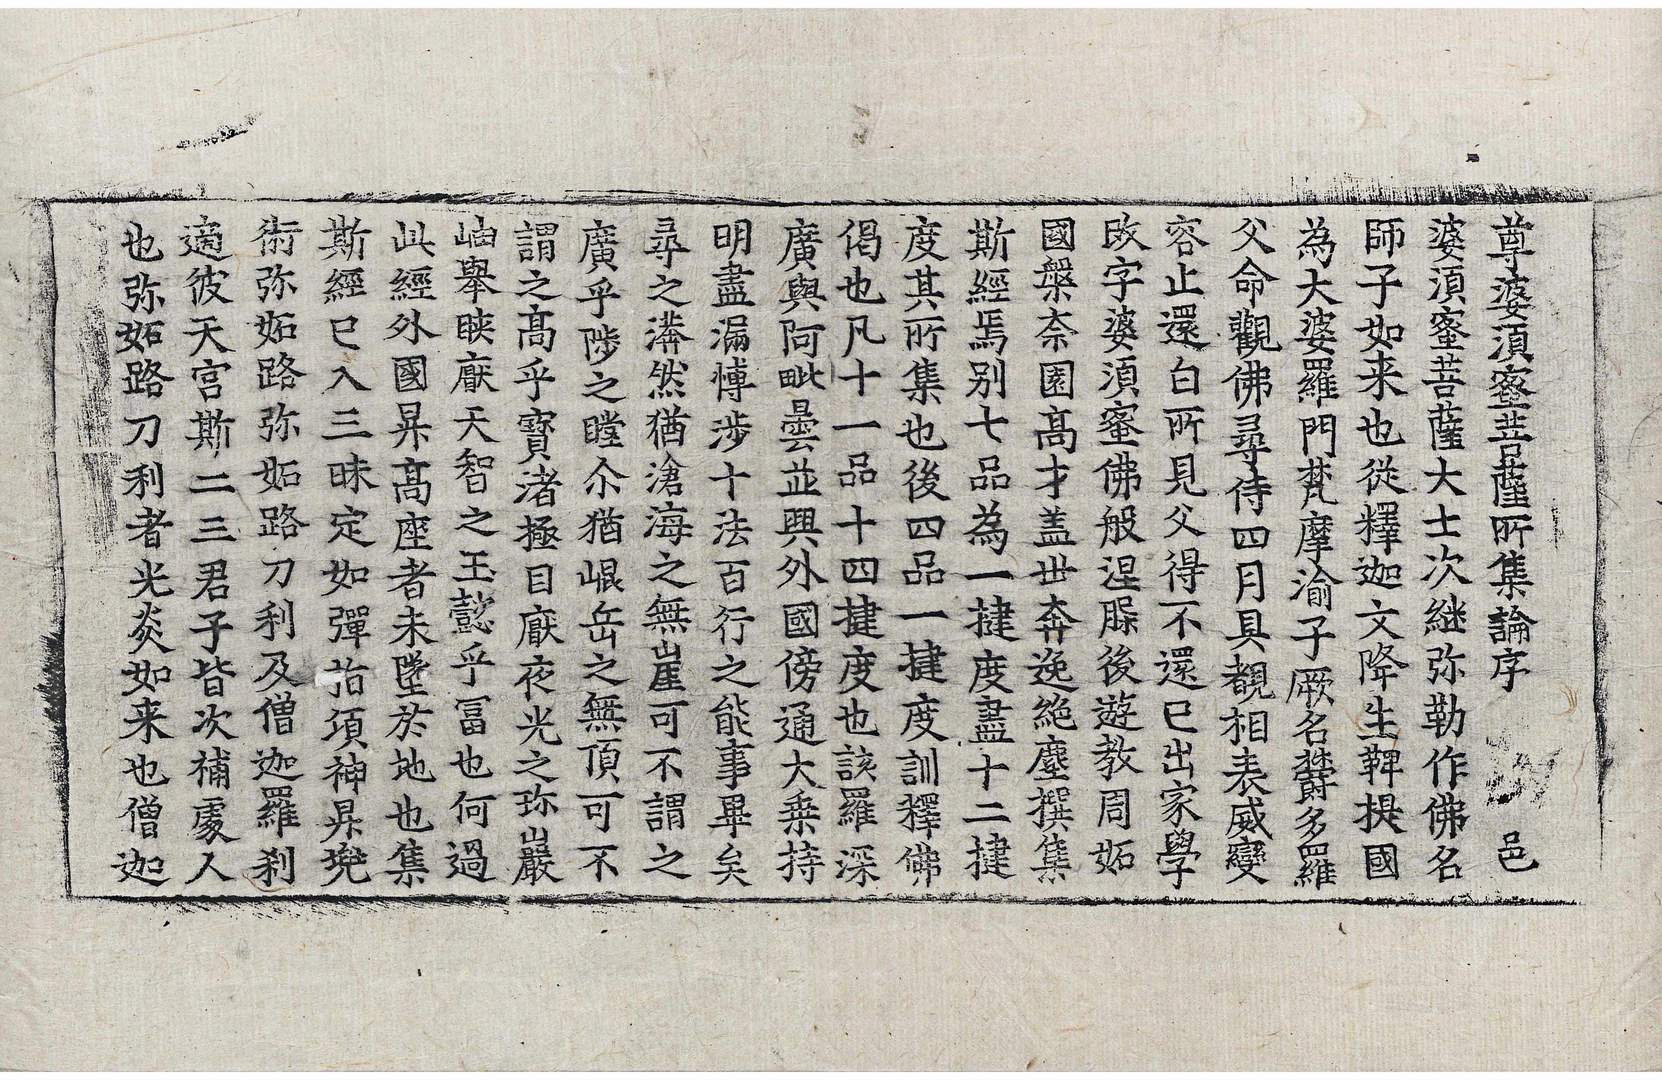 尊婆須蜜菩薩所集論序 邑
婆須蜜菩薩大士次继弥勒作佛名
師子如来也從釋迦文降生鞞提國
為大婆羅門梵摩渝子厥名欝多羅
父命觀佛尋侍四月具覩相表威變
容止還白所見父得不還已出家學
改字婆須蜜佛般涅槃後遊教周妬
國槃奈園髙才盖世奔逸絶塵撰集
斯經焉别七品為一揵度盡十二揵
度其所集也後四品一揵度訓釋佛
偈也凡十一品十四揵度也該羅深
廣與阿毗曇並興外國傍通大乗持
明盡漏愽涉十法百行之能事畢矣
尋之漭然猶滄海之無崖可不謂之
廣乎陟之瞠尒猶崐岳之無頂可不
謂之髙乎寳渚極目厭夜光之珎巖
岫舉睞厭天智之玉懿乎冨也何過
此經外國昇髙座者未墜於地也集
斯經已入三昧定如彈指頃神昇兠
術弥妬路弥妬路刀利及僧迦羅刹
適彼天宫斯二三君子皆次補處人
也弥妬路刀利者光炎如来也僧迦